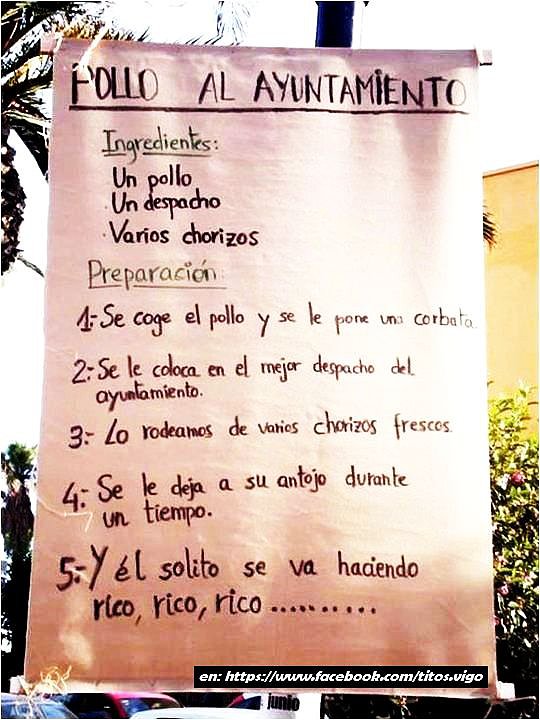 POLLO AL AYUNTAMIENTO
Ingredientes:
Un pollo
Un despacho
Varios chorizos
Preparación:
1:- Se coge el pollo y se le pone una corbata
2:- Se le coloca en el mejor despacho del
ayuntamiento.
3:- Lo rodeamos de varios chorizos frescos.
4:- Se le deja a su antojo durante
un tiempo.
5:- Y él solito se va haciendo
rico, rico, rico ..........
en: https://www.facebook.com/titos.vigo
junio